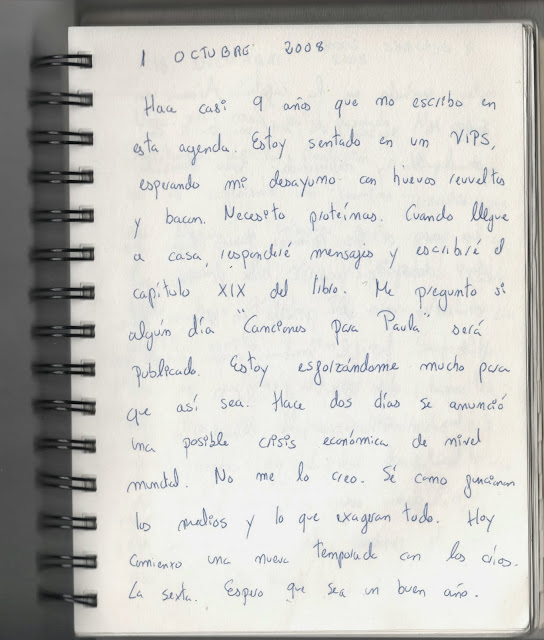 1 OCTUBRE 2008
Hace casi 9 años que no escribo en
esta agenda. Estoy sentado en un VIPS,
esperando mi desayuno con huevos revueltos
y bacon. Necesito proteínas. Cuando llegue
a casa, responderé mensajes y escribiré el
capítulo XIX del libro. Me pregunto si
algún día "Canciones para Paula" será
publicado. Estoy esforzándome mucho para
que así sea. Hace dos días se anunció
una posible crisis económica de nivel
mundial. No me lo creo. Sé como funcionan
los medios y lo que exageran todo. Hoy
comienzo una nueva temporada con los críos.
La sexta. Espero que sea un buen año.